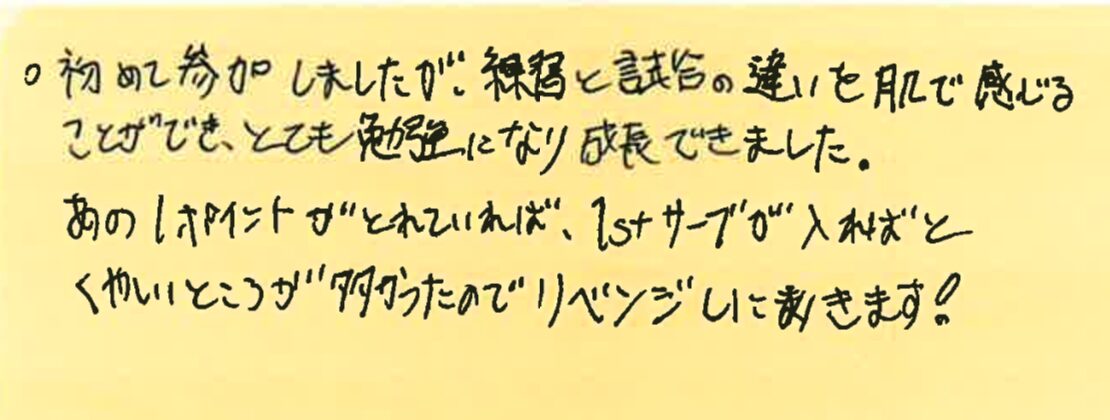 ○初めて参加しましたが、練習と試合の違いを肌で感じる
ことができ、とても勉強になり成長できました。
あの1ポイントがとれていれば、1stサーブが入ればと
くやしいところが多かったのでリベンジしにきます!